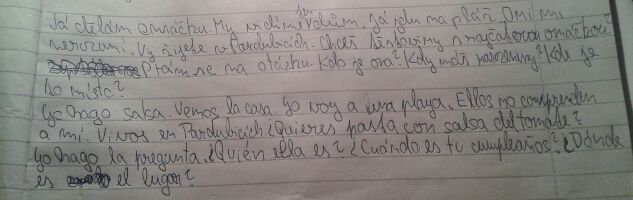 Já dělám omáčku. My vidíme dům. Já jdu na pláž. Oni mi
nerozumí. Vy žijete v Pardubicích. Chceš těstoviny s rajčatovou omáčkou?
Ptám se na otázku. Kdo je ona? Kdy máš narozeniny? Kde je
to místo?
Yo hago salsa. Vemos la casa. Yo voy a una playa. Ellos no comprenden
a mí. Vivos en Pardubicich. ¿Quieres pasta con salsa del tomate?
Yo hago la pregunta. ¿Quién ella es? ¿Cuándo es tu cumpleaños? ¿Dónde
es el lugar?